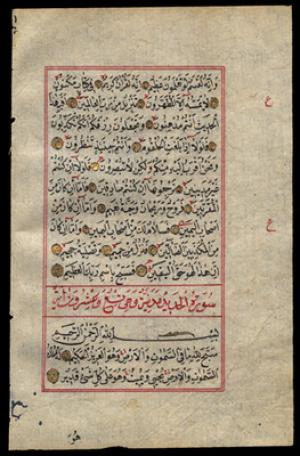 وانه لقسم لو تعلمون عظيم انه لقران كريم في كتاب مكنون
لا يمسه الا المطهرون تنزيل من رب العالمين افبهذا
الحديث انتم مدهنون وتجعلون رزقكم انكم تكذبون
فلولا اذا بلغت الحلقوم وانتم حينئذ تنظرون
ونحن اقرب اليه منكم ولكن لا تبصرون فلولا ان كنتم
غير مدينين ترجعونها ان كنتم صادقين فاما ان كان من
المقربين فروح وريحان وجنة نعيم واما ان كان من
اصحاب اليمين فسلام لك من اصحاب اليمين واما ان كان
من المكذبين الضالين فنزل من حميم وتصلية جحيم
ان هذا لهو حق اليقين فسبح باسم ربك العظيم
سورة الحديد مدنية وهي تسع وعشرون اية
بسم الله الرحمن الرحيم
سبح لله ما في السموات والارض وهو العزيز الحكيم له ملك
السموات والارض يحيي ويميت وهو على كل شئ قدير
هو